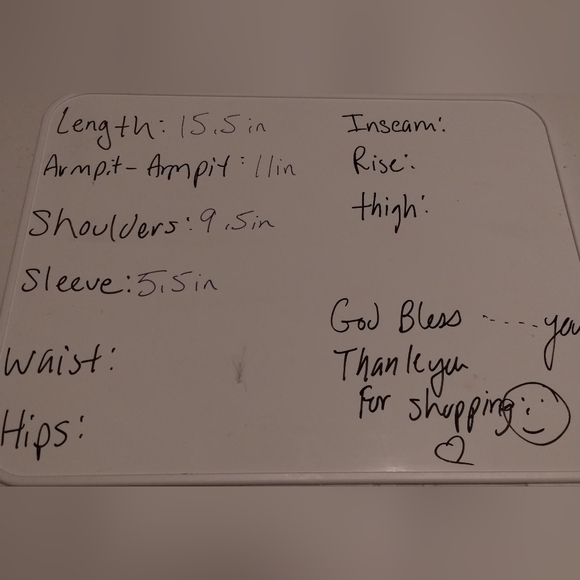 Length: 15.5 in
Armpit-Armpit: 11in
Shoulders: 9.5in
Sleeve: 5.5in
Waist:
Hips:
Inseam:
Rise:
thigh:
God Bless ----- you
Thank you
for shopping